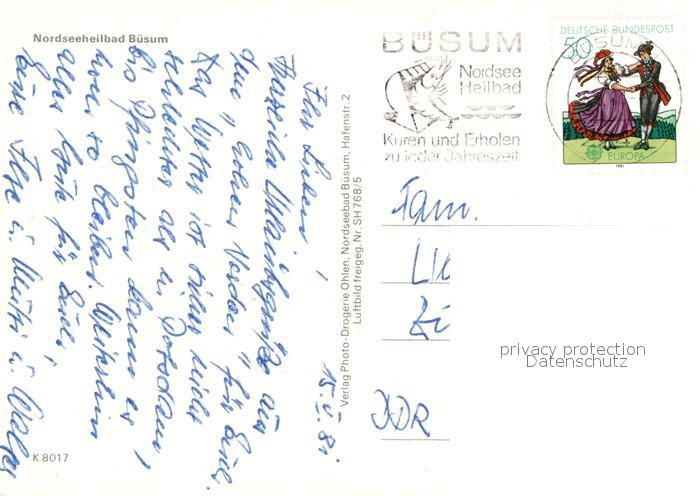 Nordseeheilbad Büsum
BÜSUM
Nordsee
Heilbad
Kuren und Erholen
zu jeder Jahreszeit
DEUTSCHE BUNDESPOST
50
BÜSUM
EUROPA
1981
Verlag Photo-Drogerie Ohlen, Nordseebad Büsum, Hafenstr. 2
Luftbild freigeg. Nr. SH 768/5
15. V. 81
Ihr Lieben!
Herzliche Urlaubsgrüße aus
dem "hohen Norden" für Euch.
Das Wetter ist sicher nicht
schlechter als in Potsdam,
bis Pfingsten kann es
so bleiben. Weiterhin
alles Gute für Euch!
Eure Ilse u. Mutti u. Walter
Fam.
DDR
K 8017
privacy protection
Datenschutz